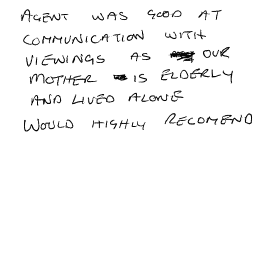 AGENT WAS GOOD AT
COMMUNICATION WITH
VIEWINGS AS OUR
MOTHER IS ELDERLY
AND LIVED ALONE
WOULD HIGHLY RECOMEND